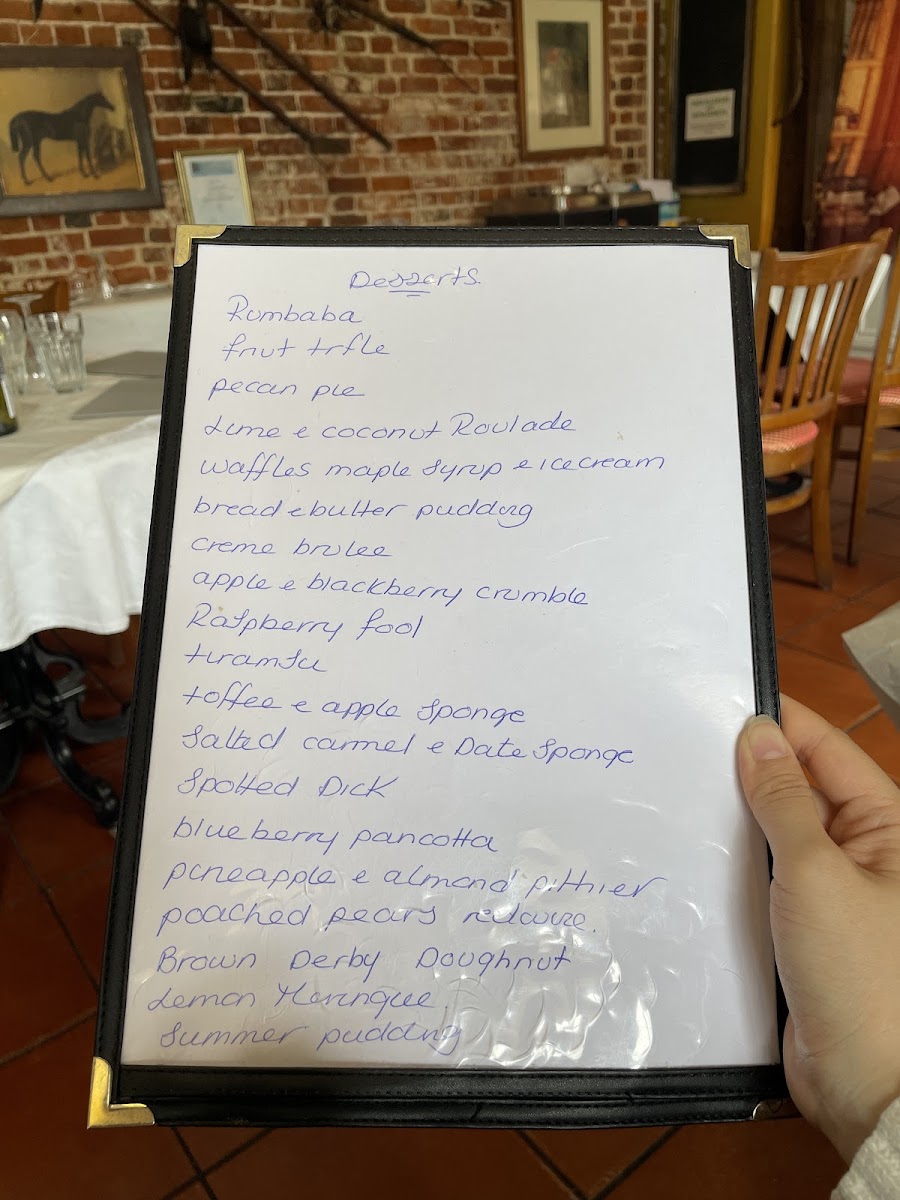 Desserts.
Rumbaba
fruit trfle
pecan pie
Lime e coconut Roulade
waffles maple syrup e icecream
bread e butter pudding
creme brulee
apple e blackberry crumble
Raspberry fool
tiramsu
toffee e apple Sponge
Salted carmel e Date Sponge
Spotted Dick
blueberry pancotta
pineapple e almond pithier
poached pears redwine.
Brown Derby Doughnut
Lemon Meringue
Summer pudding